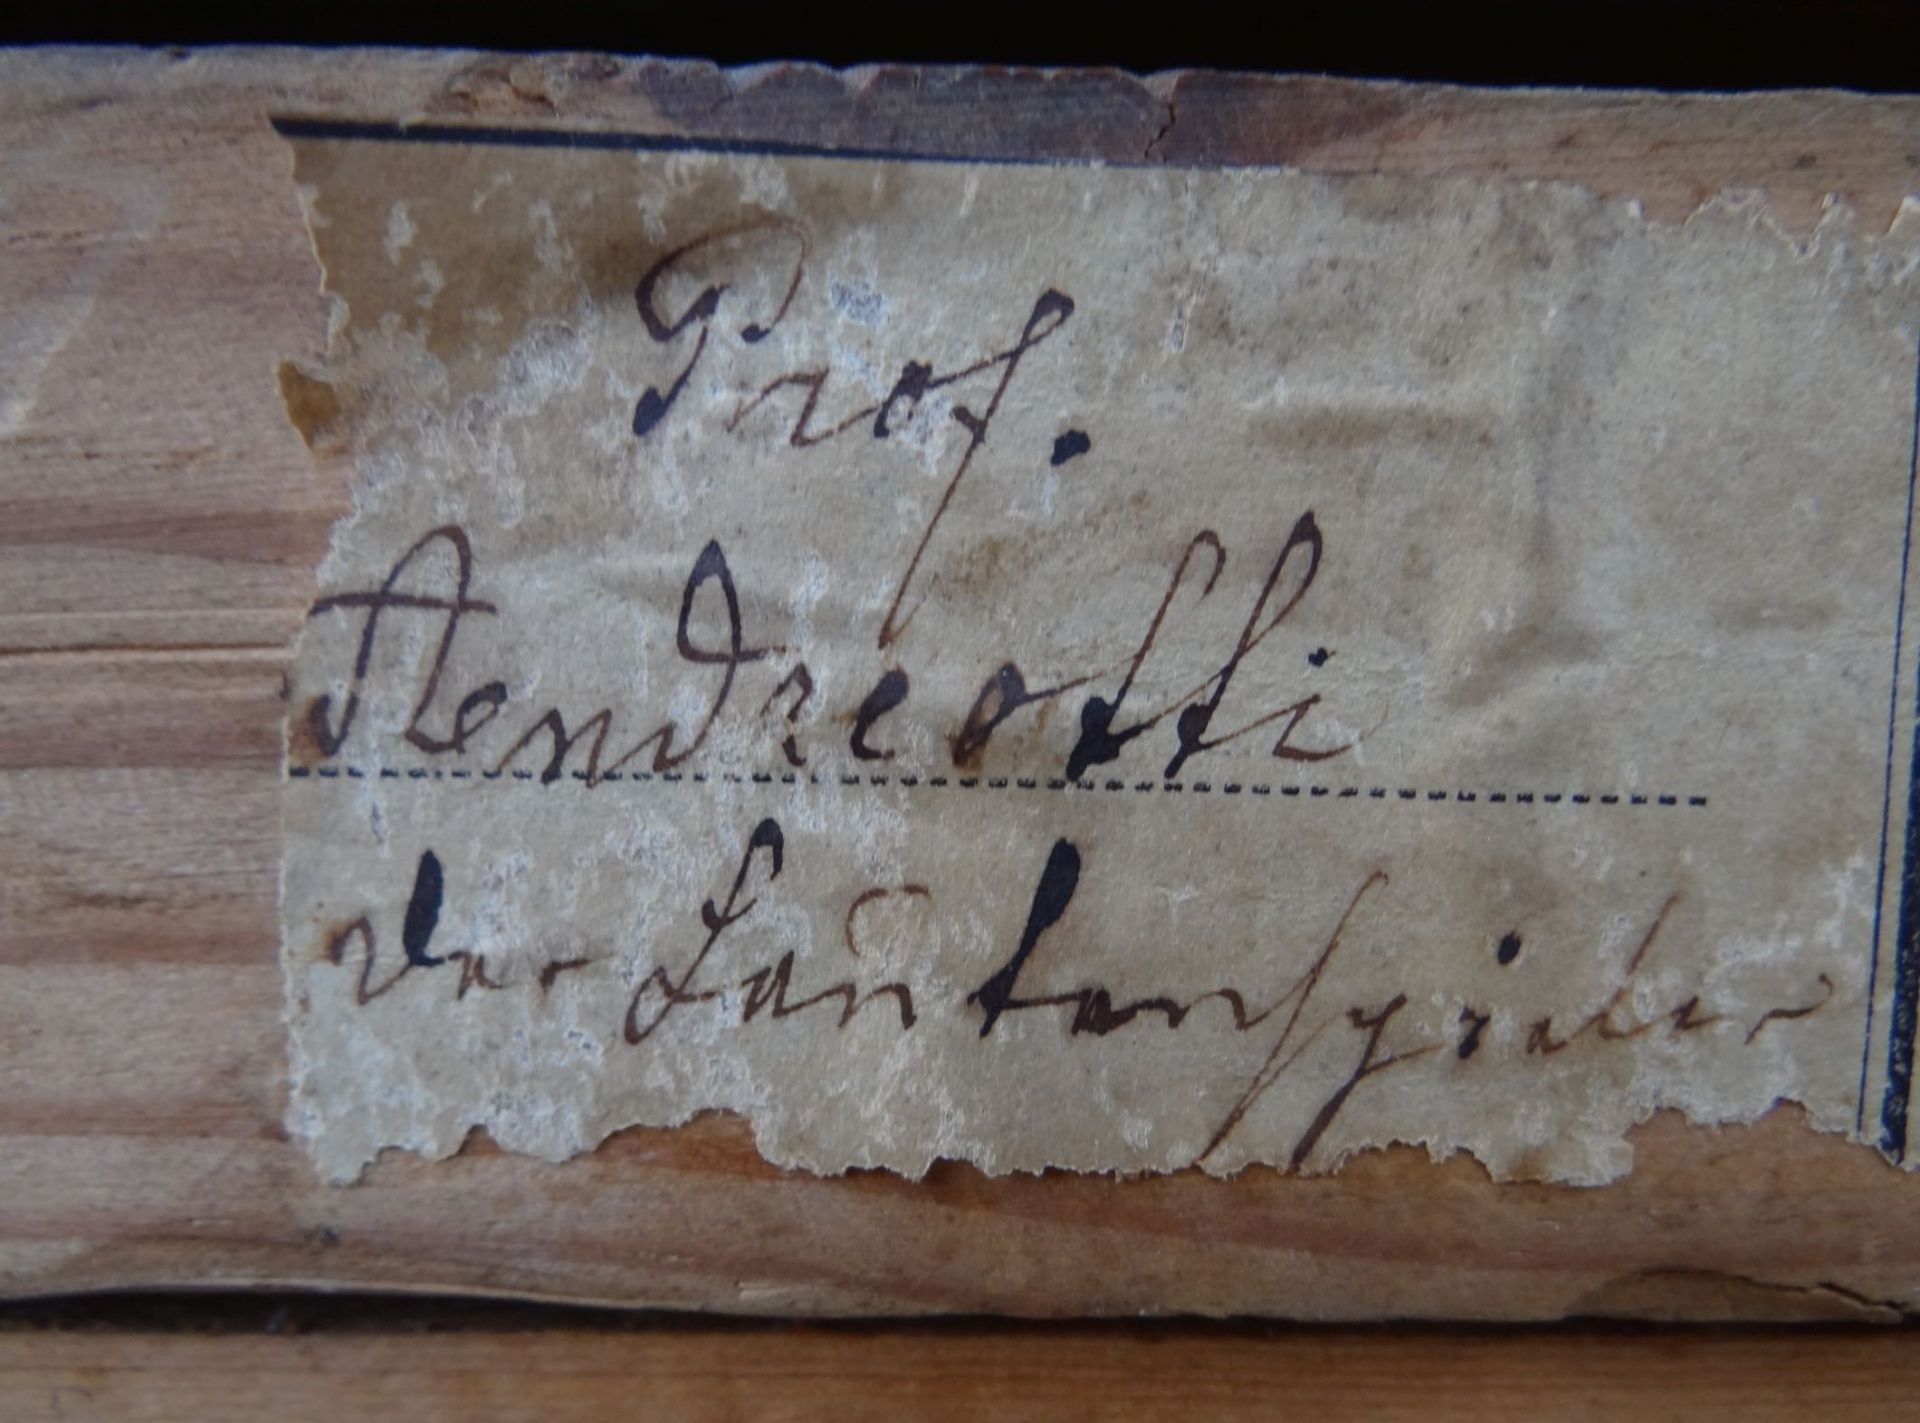 Prof.
Andreotti
der Lautenspieler